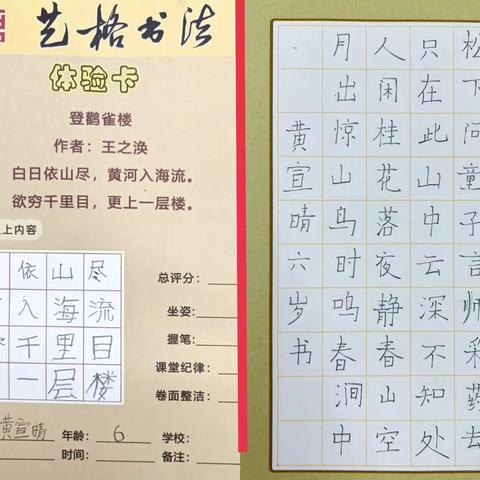 艺格书法
体验卡
登鹳雀楼
作者：王之涣
白日依山尽，黄河入海流。
欲穷千里目，更上一层楼。
上内容
依山尽
入海流
千里目
一层楼
总评分：
坐姿：
握笔：
课堂纪律：
卷面整洁：
黄宣晴 年龄： 6 学校：
时间： 备注：
松下问童子言师采药去
只在此山中云深不知处
人闲桂花落夜静春山空
月出惊山鸟时鸣春涧中
黄宣晴六岁书